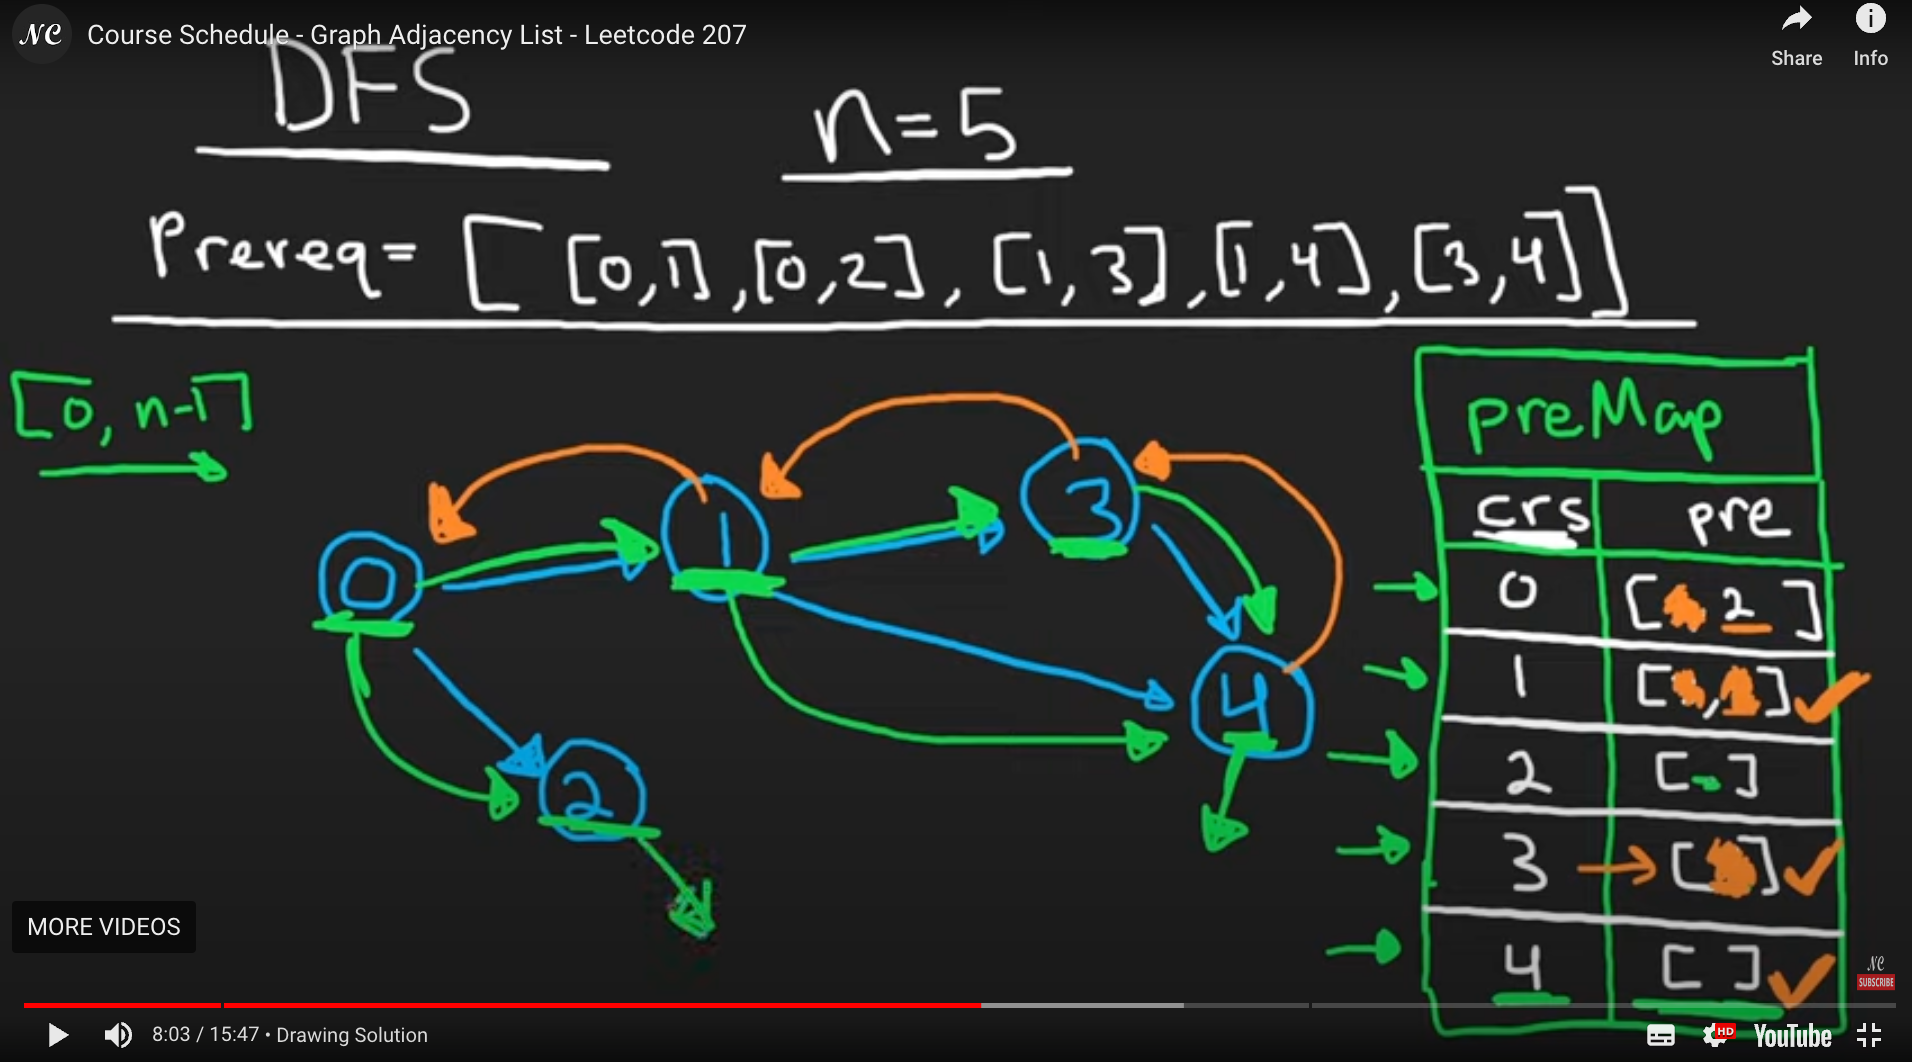 NC Course Schedule - Graph Adjacency List - Leetcode 207
Share Info
DFS n=5
Prereq= [ [0,1],[0,2], [1,3],[1,4],[3,4]]
[0, n-1]
preMap
crs pre
0 [ 2 ]
1 [ , ]
2 [ ]
3 [ ]
4 [ ]
0
1
3
4
2
MORE VIDEOS
NC
SUBSCRIBE
8:03 / 15:47 • Drawing Solution
HD YouTube